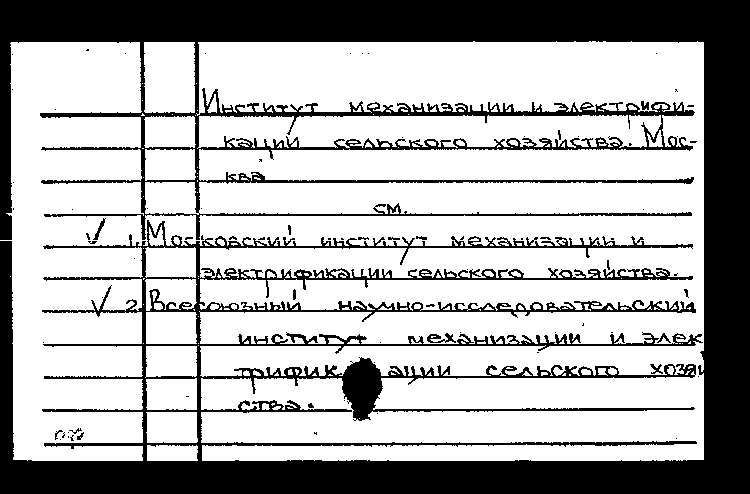 Институт механизации и электрифи-
кации сельского хозяйства. Мос-
ква
см.
✓ 1. Московский институт механизации и
электрификации сельского хозяйства.
✓ 2. Всесоюзный научно-исследовательский
институт механизации и элек
трифик ации сельского хозяй
ства.